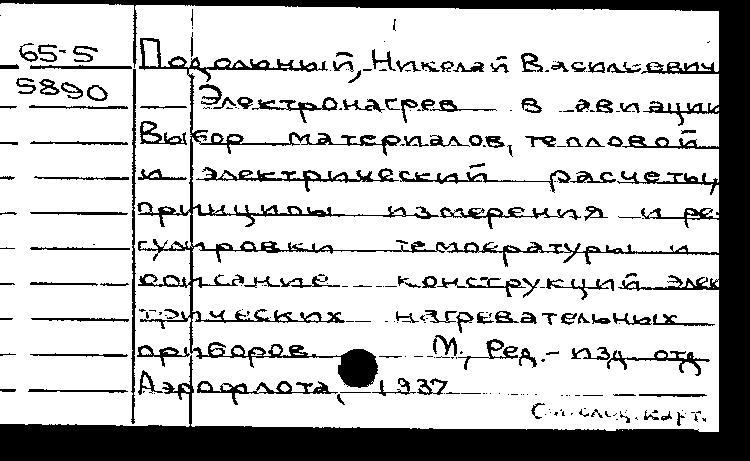 65-5
Подольный, Николай Васильевич
5890
Электронагрев в авиации
Выбор материалов, тепловой
и электрический расчеты,
принципы измерения и ре-
гулировки температуры и
описание конструкций элек
трических нагревательных
приборов. М., Ред.-изд. отд
Аэрофлота, 1937
См. след. карт.